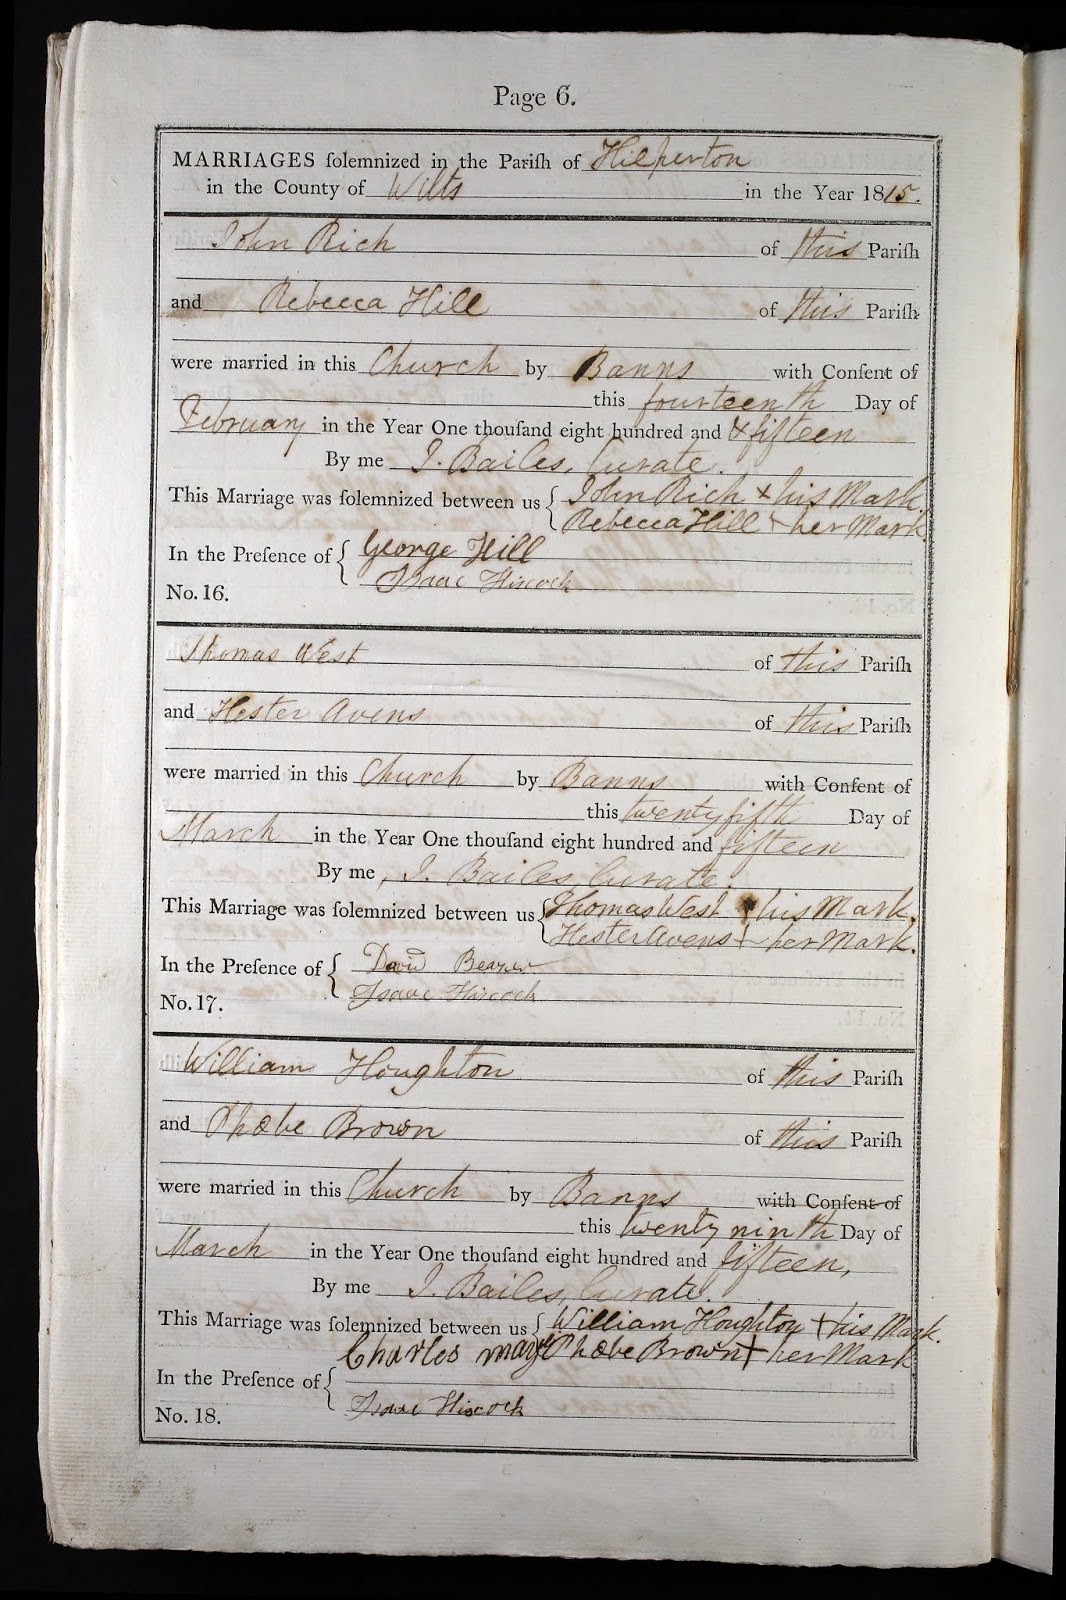 Page 6.
MARRIAGES ſolemnized in the Pariſh of Hilperton
in the County of Wilts in the Year 1815.
John Rich of this Pariſh
and Rebecca Hill of this Pariſh
were married in this Church by Banns with Conſent of
this fourteenth Day of
February in the Year One thouſand eight hundred and & fifteen
By me J. Bailes, Curate.
This Marriage was ſolemnized between us { John Rich + his Mark.
Rebecca Hill + her Mark.
In the Preſence of { George Hill
Isaac Hiscock
No. 16.
Thomas West of this Pariſh
and Hester Avens of this Pariſh
were married in this Church by Banns with Conſent of
this twenty fifth Day of
March in the Year One thouſand eight hundred and fifteen
By me, J. Bailes, Curate.
This Marriage was ſolemnized between us { Thomas West + his Mark.
Hester Avens + her Mark.
In the Preſence of { David
Isaac Hiscock
No. 17.
William Houghton of this Pariſh
and Phœbe Brown of this Pariſh
were married in this Church by Banns with Conſent of
this twenty ninth Day of
March in the Year One thouſand eight hundred and fifteen,
By me J. Bailes, Curate.
This Marriage was ſolemnized between us { William Houghton + his Mark.
Charles Phœbe Brown + her Mark
In the Preſence of {
Isaac Hiscock
No. 18.